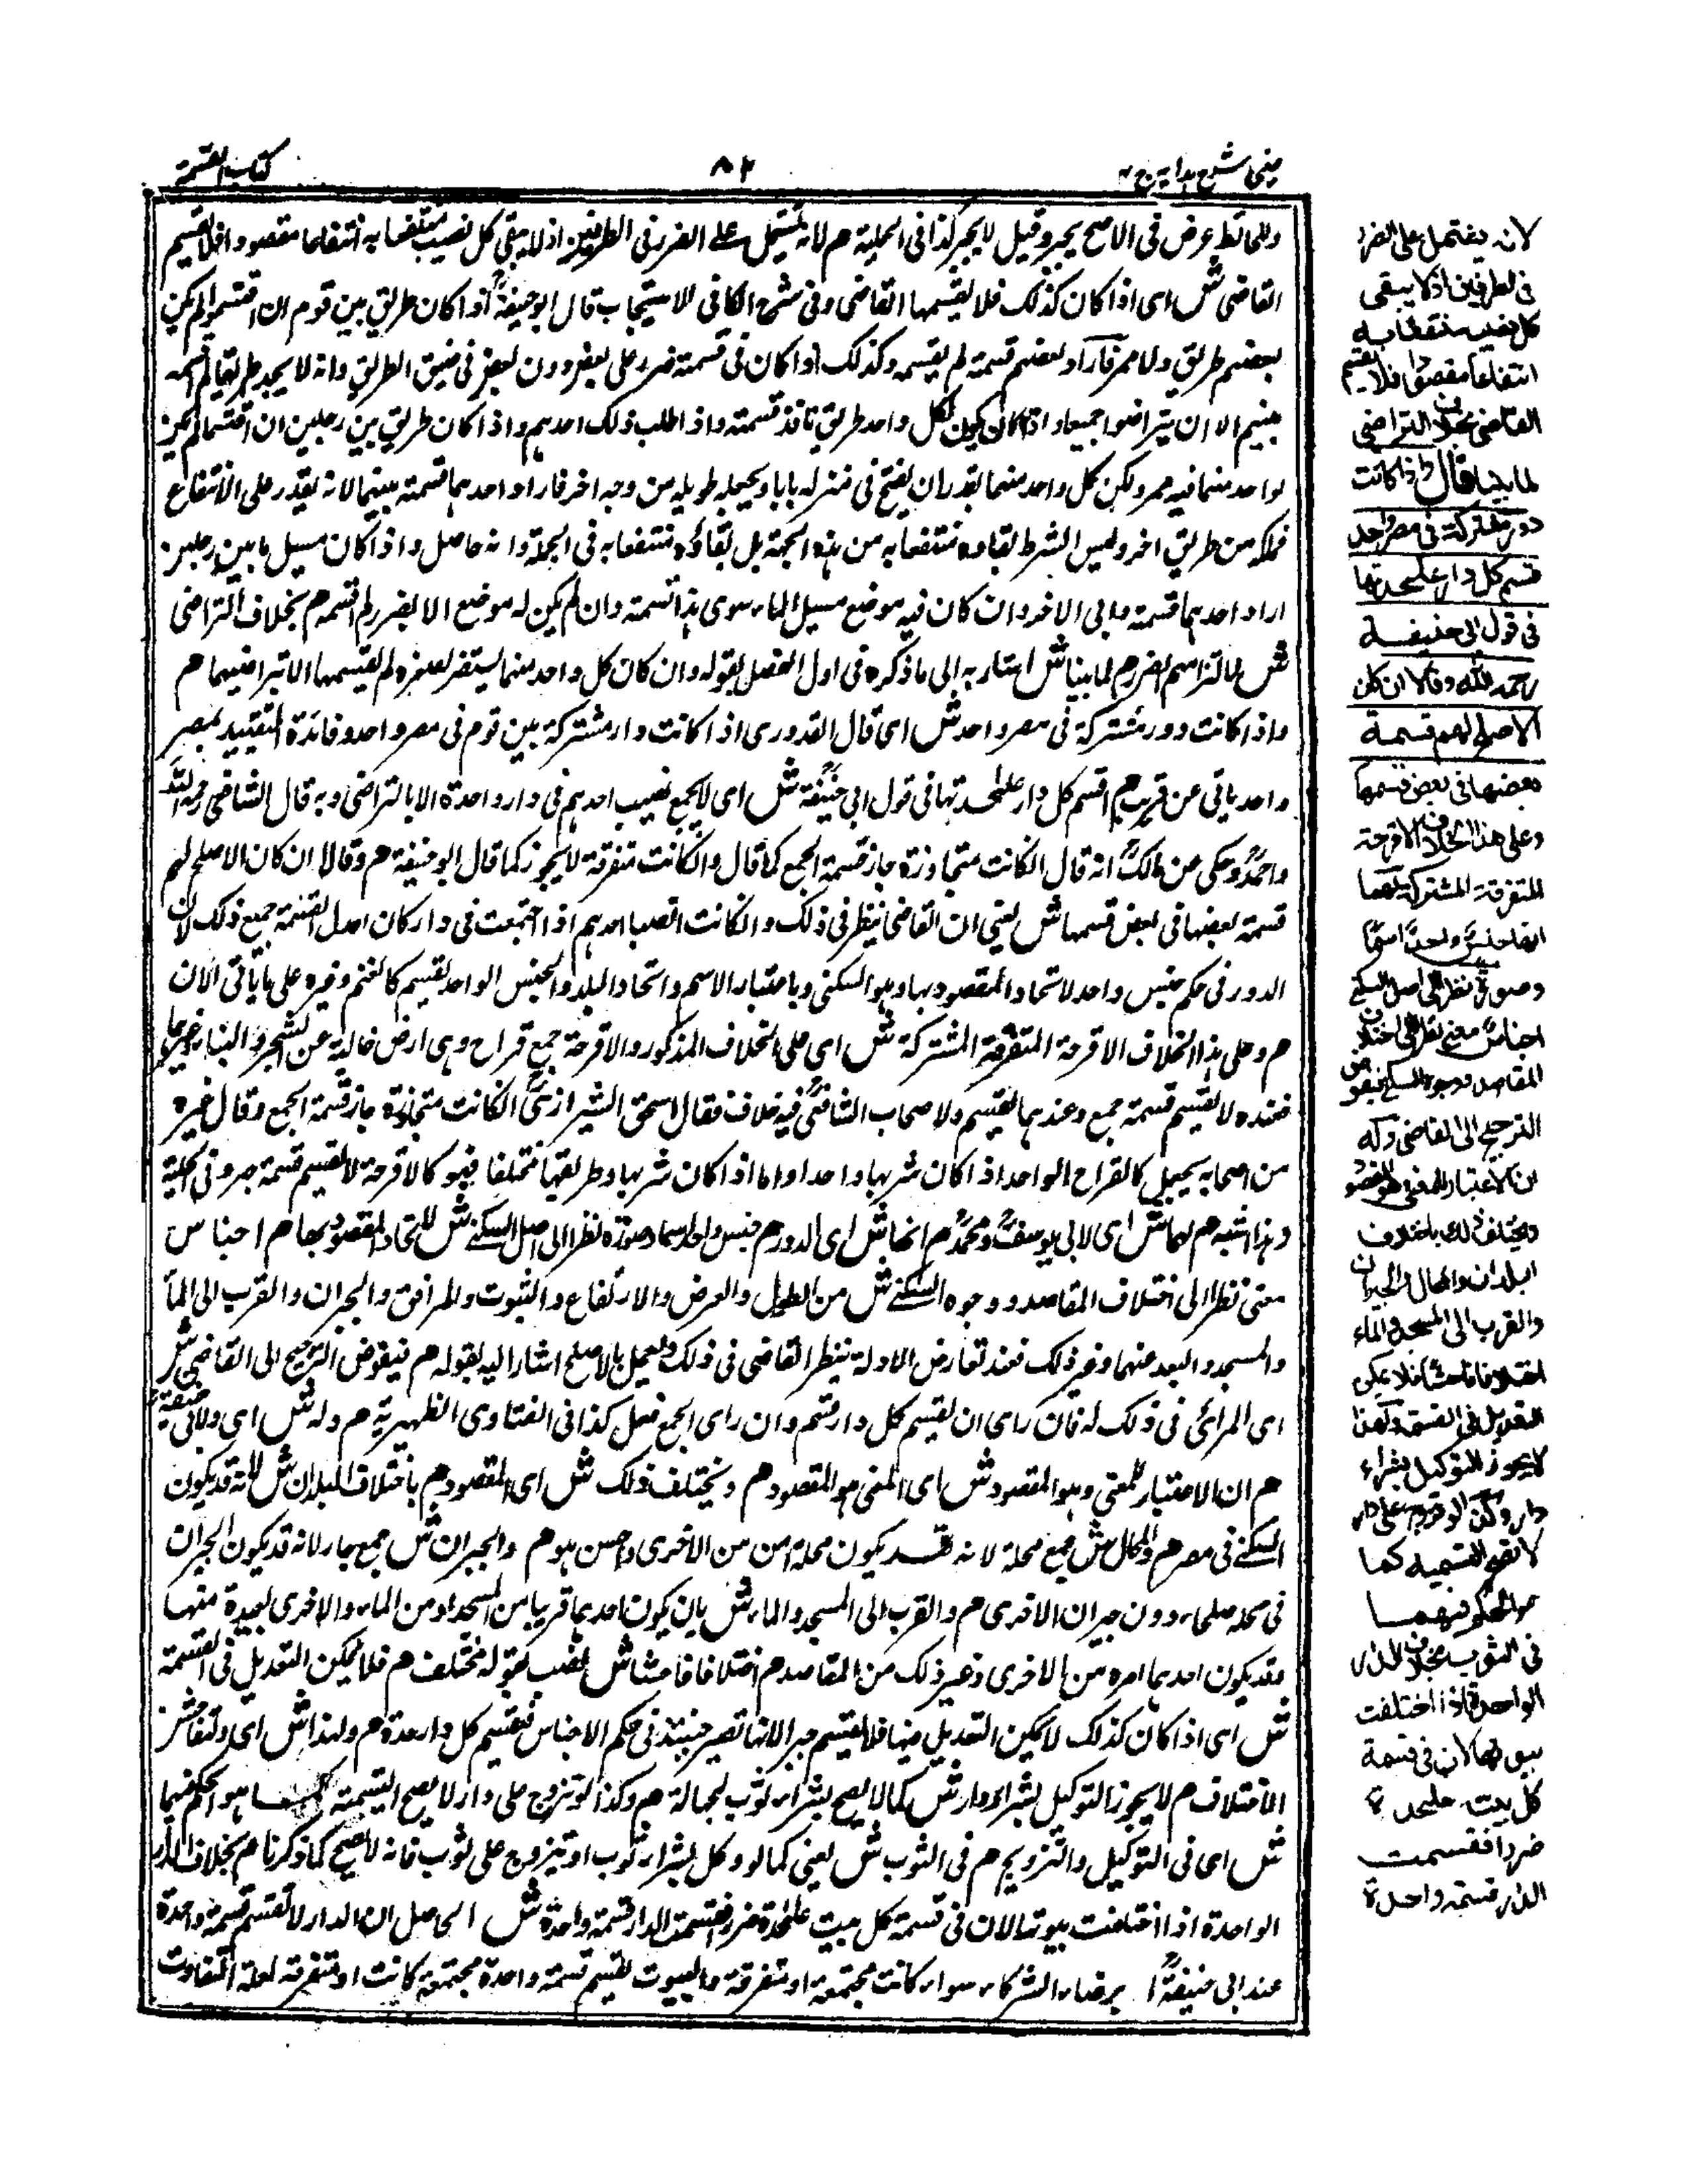 عینی شرح ہدایہ ج ٤
٨٢
كتاب القسمة
وللحائط عرض فى الاصح يجبر وقيل لا يجبر كذا فى الحلية هم لانه يشتمل على الضرر فى الطرفين اذ لا يبقى كل نصيب منتفعا به انتفاعا مقصودا فلا يقسم
القاضى ش اى اذا كان كذلك فلا يقسمها القاضى وفى شرح الكافى للاسبيجابى قال ابو حنيفة اذا كان طريق بين قوم ان اقتسموا لم يكن
لبعضهم طريق ولا ممر فاراد بعضهم قسمة لم يقسمه وكذلك اذا كان فى قسمته ضرر على بعض دون بعض فى ضيق الطريق وانه لا يجد طريقا لم اقسمه
بينهم الا ان يتراضوا جميعا واذا كان يكون لكل واحد طريق نافذ قسمته واذا طلب ذلك احدهم واذا كان طريق بين رجلين ان اقتسما لم يكن
لواحد منهما فيه ممر ولكن كل واحد منهما يقدر ان يفتح فى منزله بابا ويجعله طريقه من وجه اخر فاراد احدهما قسمته بينهما لانه يقدر على الانتفاع
فملكه من طريق اخر وليس الشرط بقاءه منتفعا به من هذه الجهة بل بقاؤه منتفعا به فى الجملة وانه حاصل واذا كان مسيل ما بين رجلين
اراد احدهما قسمته وابى الاخر وان كان فيه موضع مسيل الماء سوى هذا قسمته وان لم يكن له موضع الا بضرر لم اقسمه هم بخلاف التراضى
ش لالتزامهم الضرر هم لما بينا ش اشار به الى ما ذكره فى اول الفصل بقوله وان كان كل واحد منهما يستضر لصغره لم يقسمها الا بتراضيهما هم
واذا كانت دور مشتركة فى مصر واحد ش اى قال القدورى اذا كانت دار مشتركة بين قوم فى مصر واحد وفائدة التقييد بمصر
واحد ياتى عن قريب هم اقسم كل دار على حدتها فى قول ابى حنيفة ش اى لا يجمع نصيب احدهم فى دار واحدة الا بالتراضى وبه قال الشافعى رحمه الله
واحمد وحكى من مالك انه قال ان كانت متجاورة جاز قسمة الجمع كما قال وان كانت متفرقة لا يجوز كما قال ابو حنيفة هم وقالا ان كان الاصلح لهم
قسمة بعضها فى بعض قسمها ش يعنى ان القاضى ينظر فى ذلك وان كانت انصباء احدهم اذا اجتمعت فى دار كان اعدل القسمة جمع ذلك لان
الدور فى حكم جنس واحد لاتحاد المقصود بها وهو السكنى وباعتبار الاسم واتحاد البلد والجنس الواحد يقسم كالغنم وغيره على ما ياتى الان
هم وعلى هذا الخلاف الاقرحة المتفرقة المشتركة ش اى على الخلاف المذكور والاقرحة جمع قراح وهى ارض خالية عن الشجر والبناء وغيرهما
فعنده لا يقسم قسمة جمع وعندهما يقسم ولاصحاب الشافعى فيه خلاف فقال اسحق الشيرازى ان كانت متجاورة جاز قسمة الجمع وقال غيره
من اصحابه يجعل كالقراح الواحد اذا كان شربها واحدا واما اذا كان شربها وطريقها مختلفا فهو كالاقرحة لا يقسم قسمة جبر وفى الحلية
وهذا اشبه هم لهما ش اى لابى يوسف ومحمد هم انها ش اى الدور هم جنس واحد اسما وصورة نظرا الى اصل السكنى ش لاتحاد المقصود بها هم اجناس
معنى نظرا الى اختلاف المقاصد ووجوه السكنى ش من الطول والعرض والارتفاع والثبوت والمرافق والجيران والقرب الى الماء
والمسجد والبعد عنهما وغير ذلك فعند تعارض الادلة ينظر القاضى فى ذلك ويعمل بالاصلح اشار اليه بقوله هم فيفوض الترجيح الى القاضى ش
اى الراى فى ذلك له فان راى ان يقسم كل دار قسم وان راى الجمع فعل كذا فى الفتاوى الظهيرية هم وله ش اى ولابى حنيفة
هم ان الاعتبار للمعنى وهو المقصود ش اى المعنى هو المقصود هم ويختلف ذلك ش اى المقصود هم باختلاف البلدان ش لانه قد يكون
السكنى فى مصر هم والمحال ش جمع محلة لانه قد يكون محلة امن من الاخرى واحسن هو هم والجيران ش جمع جار لانه قد يكون الجيران
فى محلة صلحاء دون جيران الاخرى هم والقرب الى المسجد والماء ش بان يكون احدهما قريبا من المسجد او من الماء والاخرى بعيدة منها
وقد يكون احدهما امره من الاخرى وغير ذلك من المقاصد هم اختلافا فاحشا ش نصب بقوله مختلف هم فلا يمكن التعديل فى القسمة
ش اى اذا كان كذلك لا يمكن التعديل فيها فلا يقسم جبرا لانها تصير حينئذ فى حكم الاجناس فيقسم كل دار حدة هم ولهذا ش اى ولتفاحش
الاختلاف هم لا يجوز التوكيل بشراء دار ش كما لا يصح بشراء ثوب لجهالة هم وكذا لو تزوج على دار لا يصح التسمية كما هو الحكم فيهما
ش اى فى التوكيل والتزويج هم فى الثوب ش يعنى كما لو وكل بشراء ثوب او تزوج على ثوب فانه لا يصح كما ذكرنا هم بخلاف الدار
الواحدة اذا اختلفت بيوتها لان فى قسمة كل بيت على حدة ضررا فقسمت الدار قسمة واحدة ش الحاصل ان الدار لا تقسم قسمة واحدة
عند ابى حنيفة ا برضاء الشركاء سواء كانت مجتمعة او متفرقة والبيوت تقسم قسمة واحدة مجتمعة كانت او متفرقة لعلة التفاوت
لانه يشتمل على الضرر
فى الطرفين اذ لا يبقى
كل نصيب منتفعا به
انتفاعا مقصودا فلا يقسم
القاضى بخلاف التراضى
لما بينا قال واذا كانت
دور مشتركة فى مصر واحد
قسم كل دار على حدتها
فى قول ابى حنيفة
رحمه الله وقالا ان كان
الاصلح لهم قسمة
بعضها فى بعض قسمها
وعلى هذا الخلاف الاقرحة
المتفرقة المشتركة لهما
انها جنس واحد اسما
وصورة نظرا الى اصل السكنى
اجناس معنى نظرا الى اختلاف
المقاصد ووجوه السكنى فيفوض
الترجيح الى القاضى وله
ان الاعتبار للمعنى وهو المقصود
ويختلف ذلك باختلاف
البلدان والمحال والجيران
والقرب الى المسجد والماء
اختلافا فاحشا فلا يمكن
التعديل فى القسمة ولهذا
لا يجوز التوكيل بشراء
دار وكذا لو تزوج على دار
لا تصح التسمية كما
هو الحكم فيهما
فى الثوب بخلاف الدار
الواحدة اذا اختلفت
بيوتها لان فى قسمة
كل بيت على حدة
ضررا فقسمت
الدار قسمة واحدة